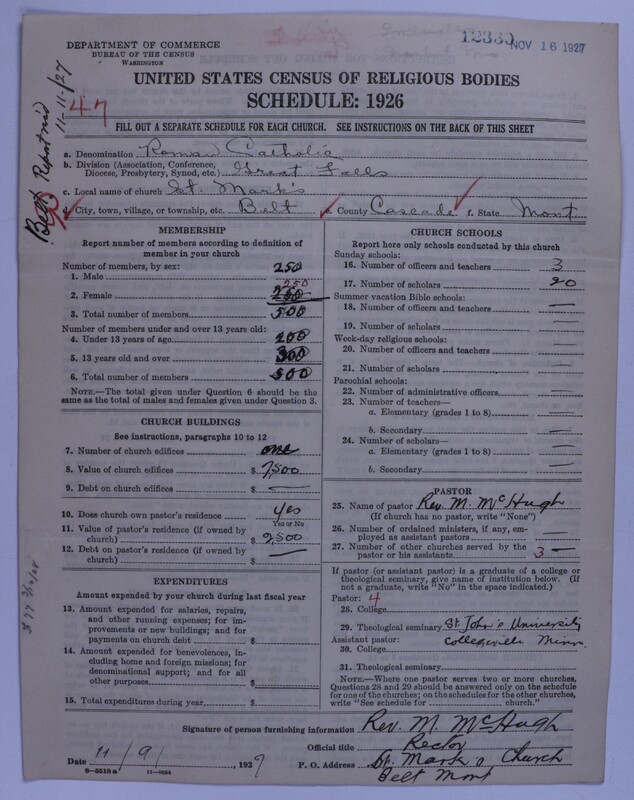 DEPARTMENT OF COMMERCE
BUREAU OF THE CENSUS
WASHINGTON
12330 NOV 16 1927
Belt Report rec'd
11-11-/27
47
UNITED STATES CENSUS OF RELIGIOUS BODIES
SCHEDULE: 1926
FILL OUT A SEPARATE SCHEDULE FOR EACH CHURCH. SEE INSTRUCTIONS ON THE BACK OF THIS SHEET
a. Denomination Roman Catholic
b. Division (Association, Conference, Diocese, Presbytery, Synod, etc.) Great Falls
c. Local name of church St. Mark's
d. City, town, village, or township, etc. Belt e. County Cascade f. State Mont
MEMBERSHIP
Report number of members according to definition of
member in your church
Number of members, by sex:
1. Male 250
2. Female 250 250
3. Total number of members 500
Number of members under and over 13 years old:
4. Under 13 years of age 200
5. 13 years old and over 300
6. Total number of members 500
NOTE.—The total given under Question 6 should be
same as the total of males and females given under Question 3.
CHURCH BUILDINGS
See instructions, paragraphs 10 to 12
7. Number of church edifices one
8. Value of church edifices $ 7,500
9. Debt on church edifices $ —
10. Does church own pastor's residence yes
Yes or No
11. Value of pastor's residence (if owned by
church) $ 2500
12. Debt on pastor's residence (if owned by
church) $ —
EXPENDITURES
Amount expended by your church during last fiscal year
13. Amount expended for salaries, repairs,
and other running expenses; for im-
provements or new buildings; and for
payments on church debt $
14. Amount expended for benevolences, in-
cluding home and foreign missions; for
denominational support; and for all
other purposes $
15. Total expenditures during year $
CHURCH SCHOOLS
Report here only schools conducted by this church
Sunday schools:
16. Number of officers and teachers 3
17. Number of scholars 20
Summer vacation Bible schools:
18. Number of officers and teachers —
19. Number of scholars —
Week-day religious schools:
20. Number of officers and teachers —
21. Number of scholars —
Parochial schools:
22. Number of administrative officers —
23. Number of teachers—
a. Elementary (grades 1 to 8) —
b. Secondary —
24. Number of scholars—
a. Elementary (grades 1 to 8) —
b. Secondary —
PASTOR
25. Name of pastor Rev. M. McHugh
(If church has no pastor, write "None")
26. Number of ordained ministers, if any, em-
ployed as assistant pastors —
27. Number of other churches served by the
pastor or his assistants 3 —
If pastor (or assistant pastor) is a graduate of a college or
theological seminary, give name of institution below. (If
not a graduate, write "No" in the space indicated.)
Pastor: 4
28. College
29. Theological seminary St John's University
Assistant pastor: Collegeville Minn.
30. College
31. Theological seminary
NOTE.—Where one pastor serves two or more churches,
Questions 28 and 29 should be answered only on the schedule
for one of the churches; on the schedules for the other churches,
write "See schedule for church."
Signature of person furnishing information Rev. M. McHugh
Official title Rector
Date 11/9/, 1927 P. O. Address St. Mark's Church
8-5518a 11-9034 Belt Mont